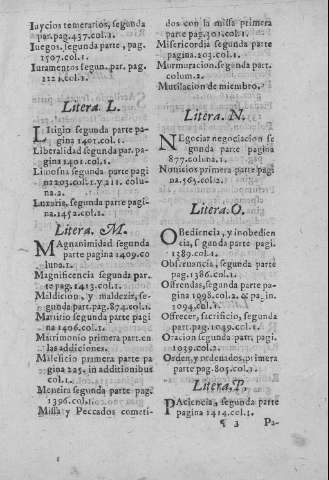 Iuycios temerarios, segunda
par.pag.437.col.1.
Iuegos, segunda parte, pag.
1507.col.1.
Iuramentos segun. par. pag.
1121.col.2.
Litera. L.
Litigio segunda parte pa-
gina 1401.col.1.
Liberalidad segunda par. pa-
gina 1401.col.1.
Limosna segunda parte pagi
na 203.col.1.y 211. colu-
na.2.
Luxuria, segunda parte pagi-
na.1452.col.2.
Litera. M.
Magnanimidad segunda
parte pagina 1409.co
luna 1.
Magnificencia segunda par.
te pag.1413.col.1.
Maldicion, y maldezir, se-
gunda part.pag.874.col.1.
Martirio segunda parte pagi
na 1406.col.1.
Matrimonio primera part.en
las addiciones.
Maleficio primera parte pa
gina 225. in additionibus
col.1.
Mentira segunda parte page
1396.col.1.
Missa y Peccados cometi-
dos con la missa primera
parte pag.301.col.1.
Misericordia segunda parte
pagina.203.col.1.
Murmuracion.segunda part.
colum.2.
Mutilacion de miembro.
Litera. N.
Negociar negociacion se
gunda parte pagina
877.coluna.1.
Nouicios primera parte pagi
na.563.col.2.
Litera. O.
Obediencia, y inobedien
cia, segunda parte pagi.
1389.col.1.
Obseruancia, segunda parte
pag.1386.col.1.
Ofrendas, segunda parte pa-
gina 1098.col.2. & pa in.
1094.col.1.
Ofrecer, sacrificio, segunda
part.pag.1049.col.1.
Oracion segunda part. pagi.
1039.col.2.
Orden, y ordenados, primera
parte pag.805.col.1.
Litera. P.
Paciencia, segunda parte
pagina 1414.col.1.
¶ 3 Pa-